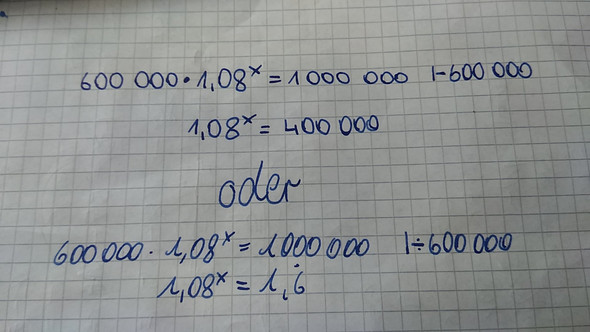 600 000 · 1,08ˣ = 1 000 000 |-600 000
1,08ˣ = 400 000
oder
600 000 · 1,08ˣ = 1 000 000 |÷600 000
1,08ˣ = 1,6̇